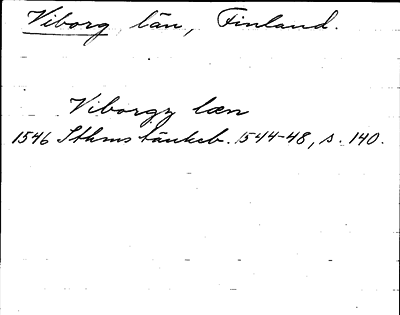 Viborg län, Finland.
Viborgz læn
1546 Sthms tänkeb. 1544-48, s. 140.